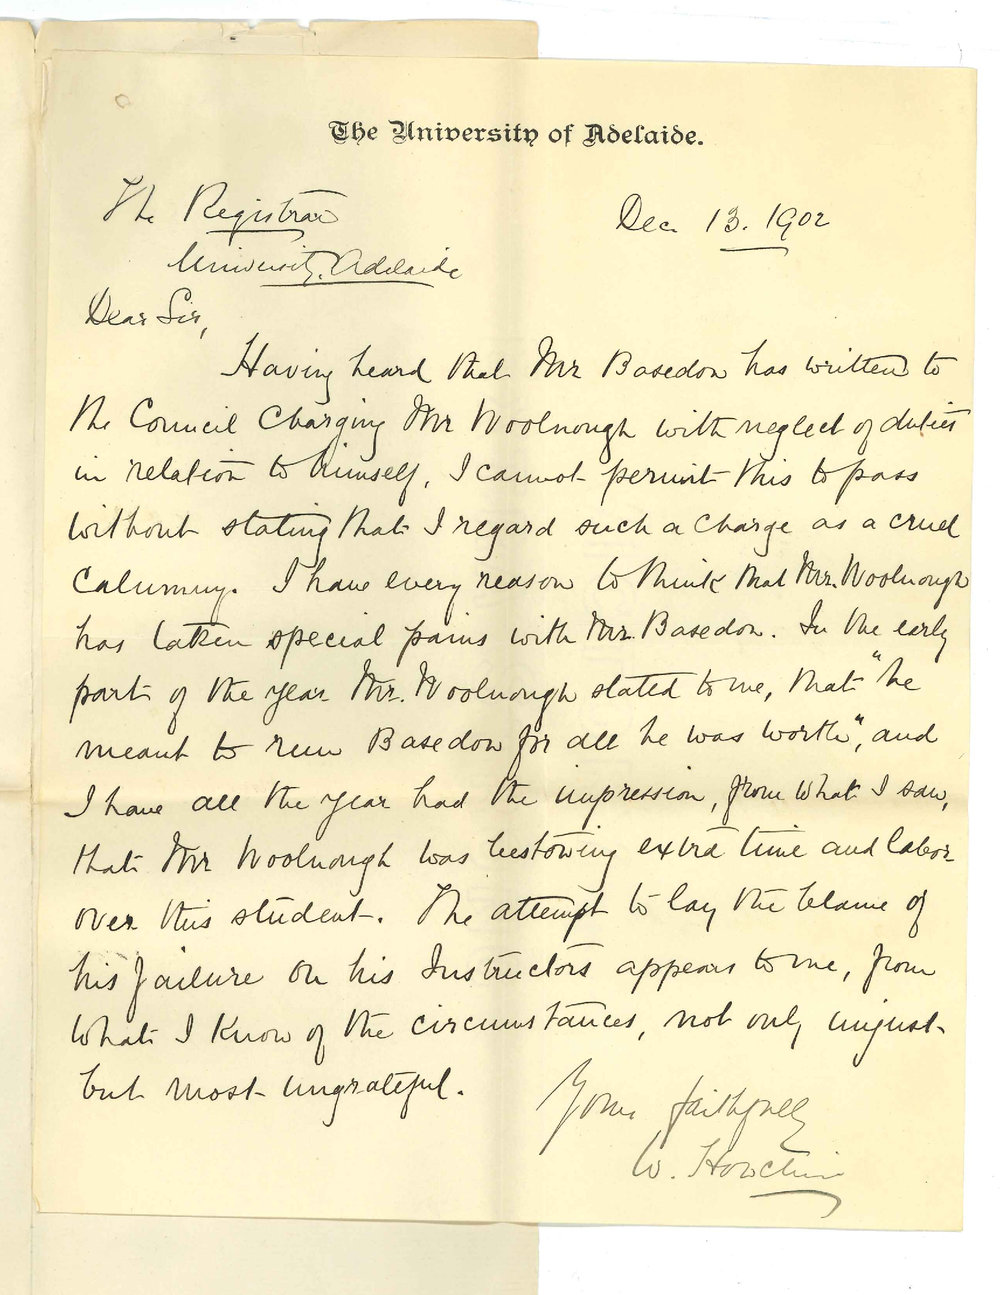 The University of Adelaide.
The Registrar
Dec. 13. 1902
University. Adelaide
Dear Sir,
Having heard that Mr Basedow has written to
the Council Charging Mr Woolnough with neglect of duties
in relation to himself, I cannot permit this to pass
without stating that I regard such a charge as a cruel
Calumny. I have every reason to think that Mr. Woolnough
has taken special pains with Mr. Basedow. In the early
part of the year Mr. Woolnough stated to me, that "he
meant to run Basedow for all he was worth", and
I have all the year had the impression, from what I saw,
that Mr Woolnough was bestowing extra time and labor
over this student. The attempt to lay the blame of
his failure on his Instructors appears to me, from
what I know of the circumstances, not only unjust
but most ungrateful.
Yours faithfully
W. Howchin